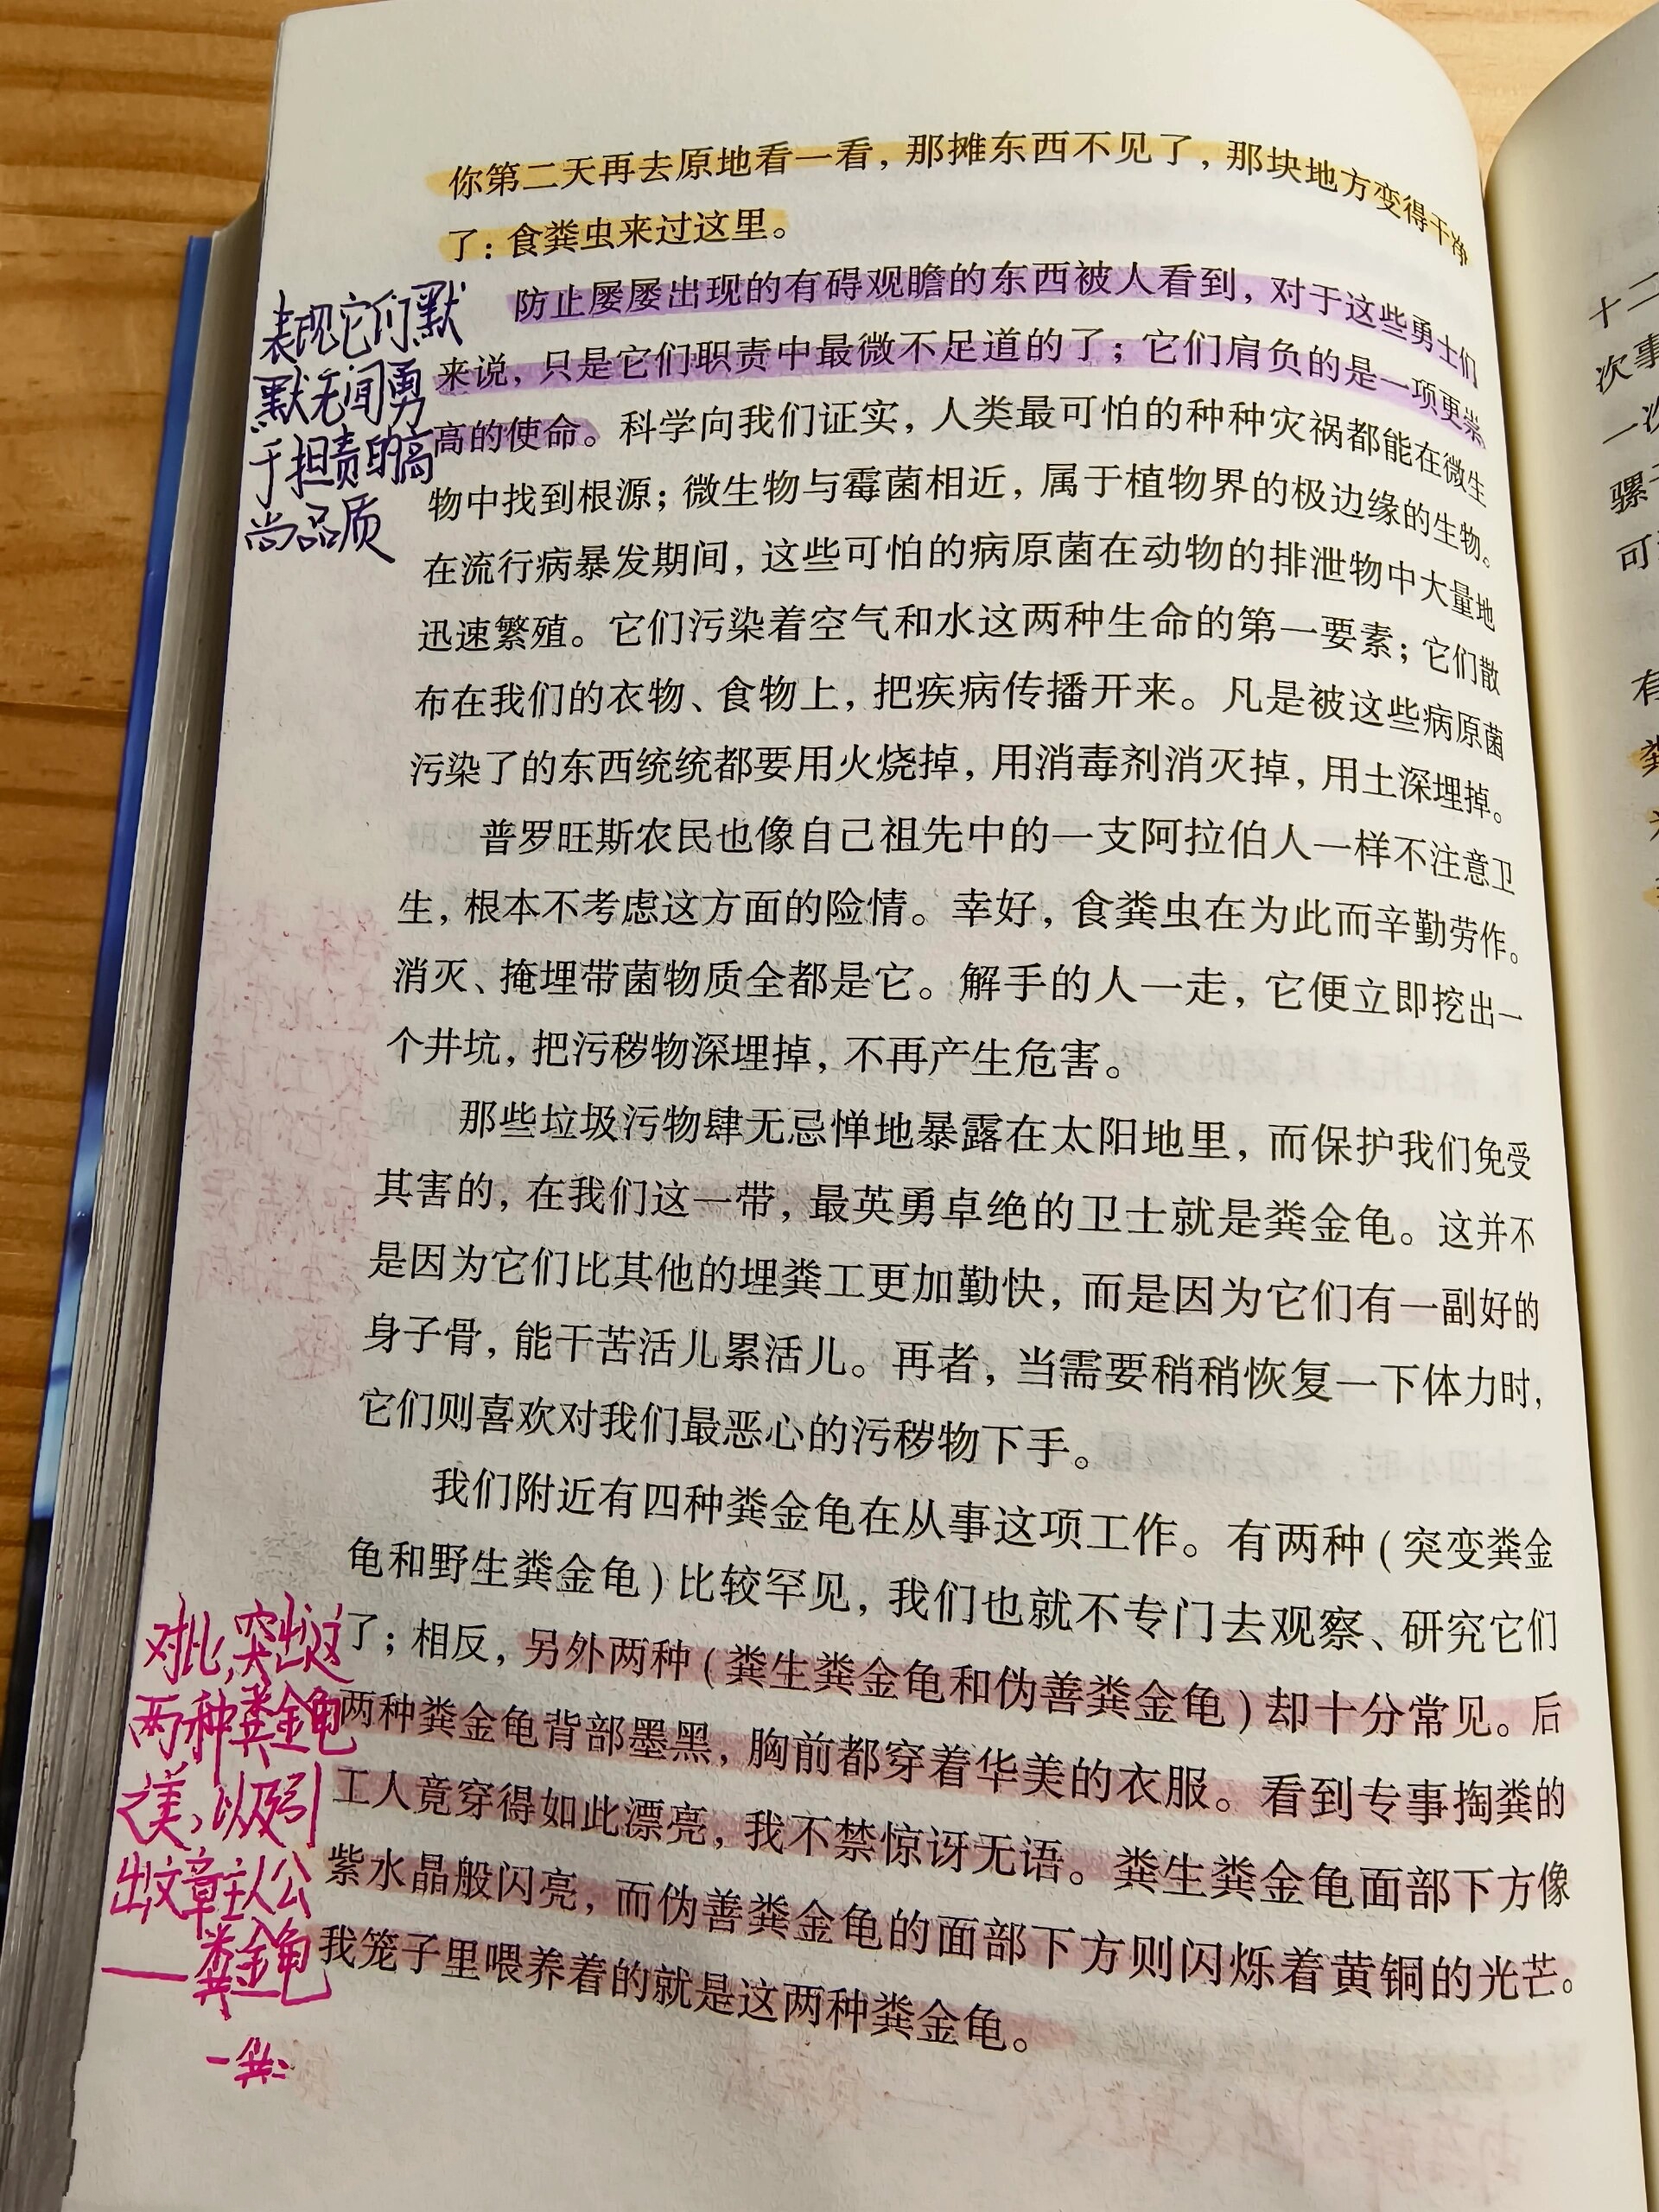 你第二天再去原地看一看，那摊东西不见了，那块地方变得干净
了：食粪虫来过这里。
防止屡屡出现的有碍观瞻的东西被人看到，对于这些勇士们
来说，只是它们职责中最微不足道的了；它们肩负的是一项更崇
高的使命。科学向我们证实，人类最可怕的种种灾祸都能在微生
物中找到根源；微生物与霉菌相近，属于植物界的极边缘的生物。
在流行病暴发期间，这些可怕的病原菌在动物的排泄物中大量地
迅速繁殖。它们污染着空气和水这两种生命的第一要素；它们散
布在我们的衣物、食物上，把疾病传播开来。凡是被这些病原菌
污染了的东西统统都要用火烧掉，用消毒剂消灭掉，用土深埋掉。
普罗旺斯农民也像自己祖先中的一支阿拉伯人一样不注意卫
生，根本不考虑这方面的险情。幸好，食粪虫在为此而辛勤劳作。
消灭、掩埋带菌物质全都是它。解手的人一走，它便立即挖出一
个井坑，把污秽物深埋掉，不再产生危害。
那些垃圾污物肆无忌惮地暴露在太阳地里，而保护我们免受
其害的，在我们这一带，最英勇卓绝的卫士就是粪金龟。这并不
是因为它们比其他的埋粪工更加勤快，而是因为它们有一副好的
身子骨，能干苦活儿累活儿。再者，当需要稍稍恢复一下体力时，
它们则喜欢对我们最恶心的污秽物下手。
我们附近有四种粪金龟在从事这项工作。有两种（突变粪金
龟和野生粪金龟）比较罕见，我们也就不专门去观察、研究它们
了；相反，另外两种（粪生粪金龟和伪善粪金龟）却十分常见。后
两种粪金龟背部墨黑，胸前都穿着华美的衣服。看到专事掏粪的
工人竟穿得如此漂亮，我不禁惊讶无语。粪生粪金龟面部下方像
紫水晶般闪亮，而伪善粪金龟的面部下方则闪烁着黄铜的光芒。
我笼子里喂养着的就是这两种粪金龟。
表现它们默
默无闻勇
于担责的高
尚品质
对比，突出这
两种粪金龟
之美，以及引
出文章主人公
——粪金龟
十二
次事
一次
骡子
可
有
粪